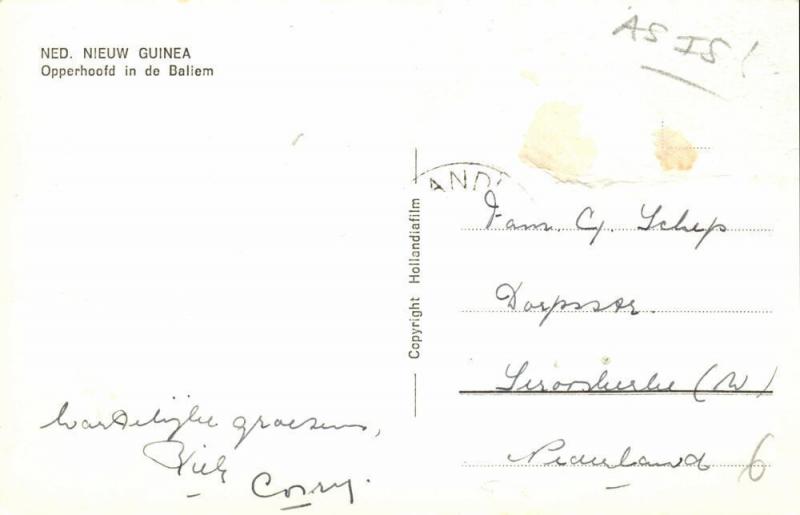 NED. NIEUW GUINEA
Opperhoofd in de Baliem
AS IS!
AND
Copyright Hollandiafilm
Fam. Cj. Schep
Dorpsstr.
Serooskerke (W)
Nederland
6
hartelijke groetens,
Corry.